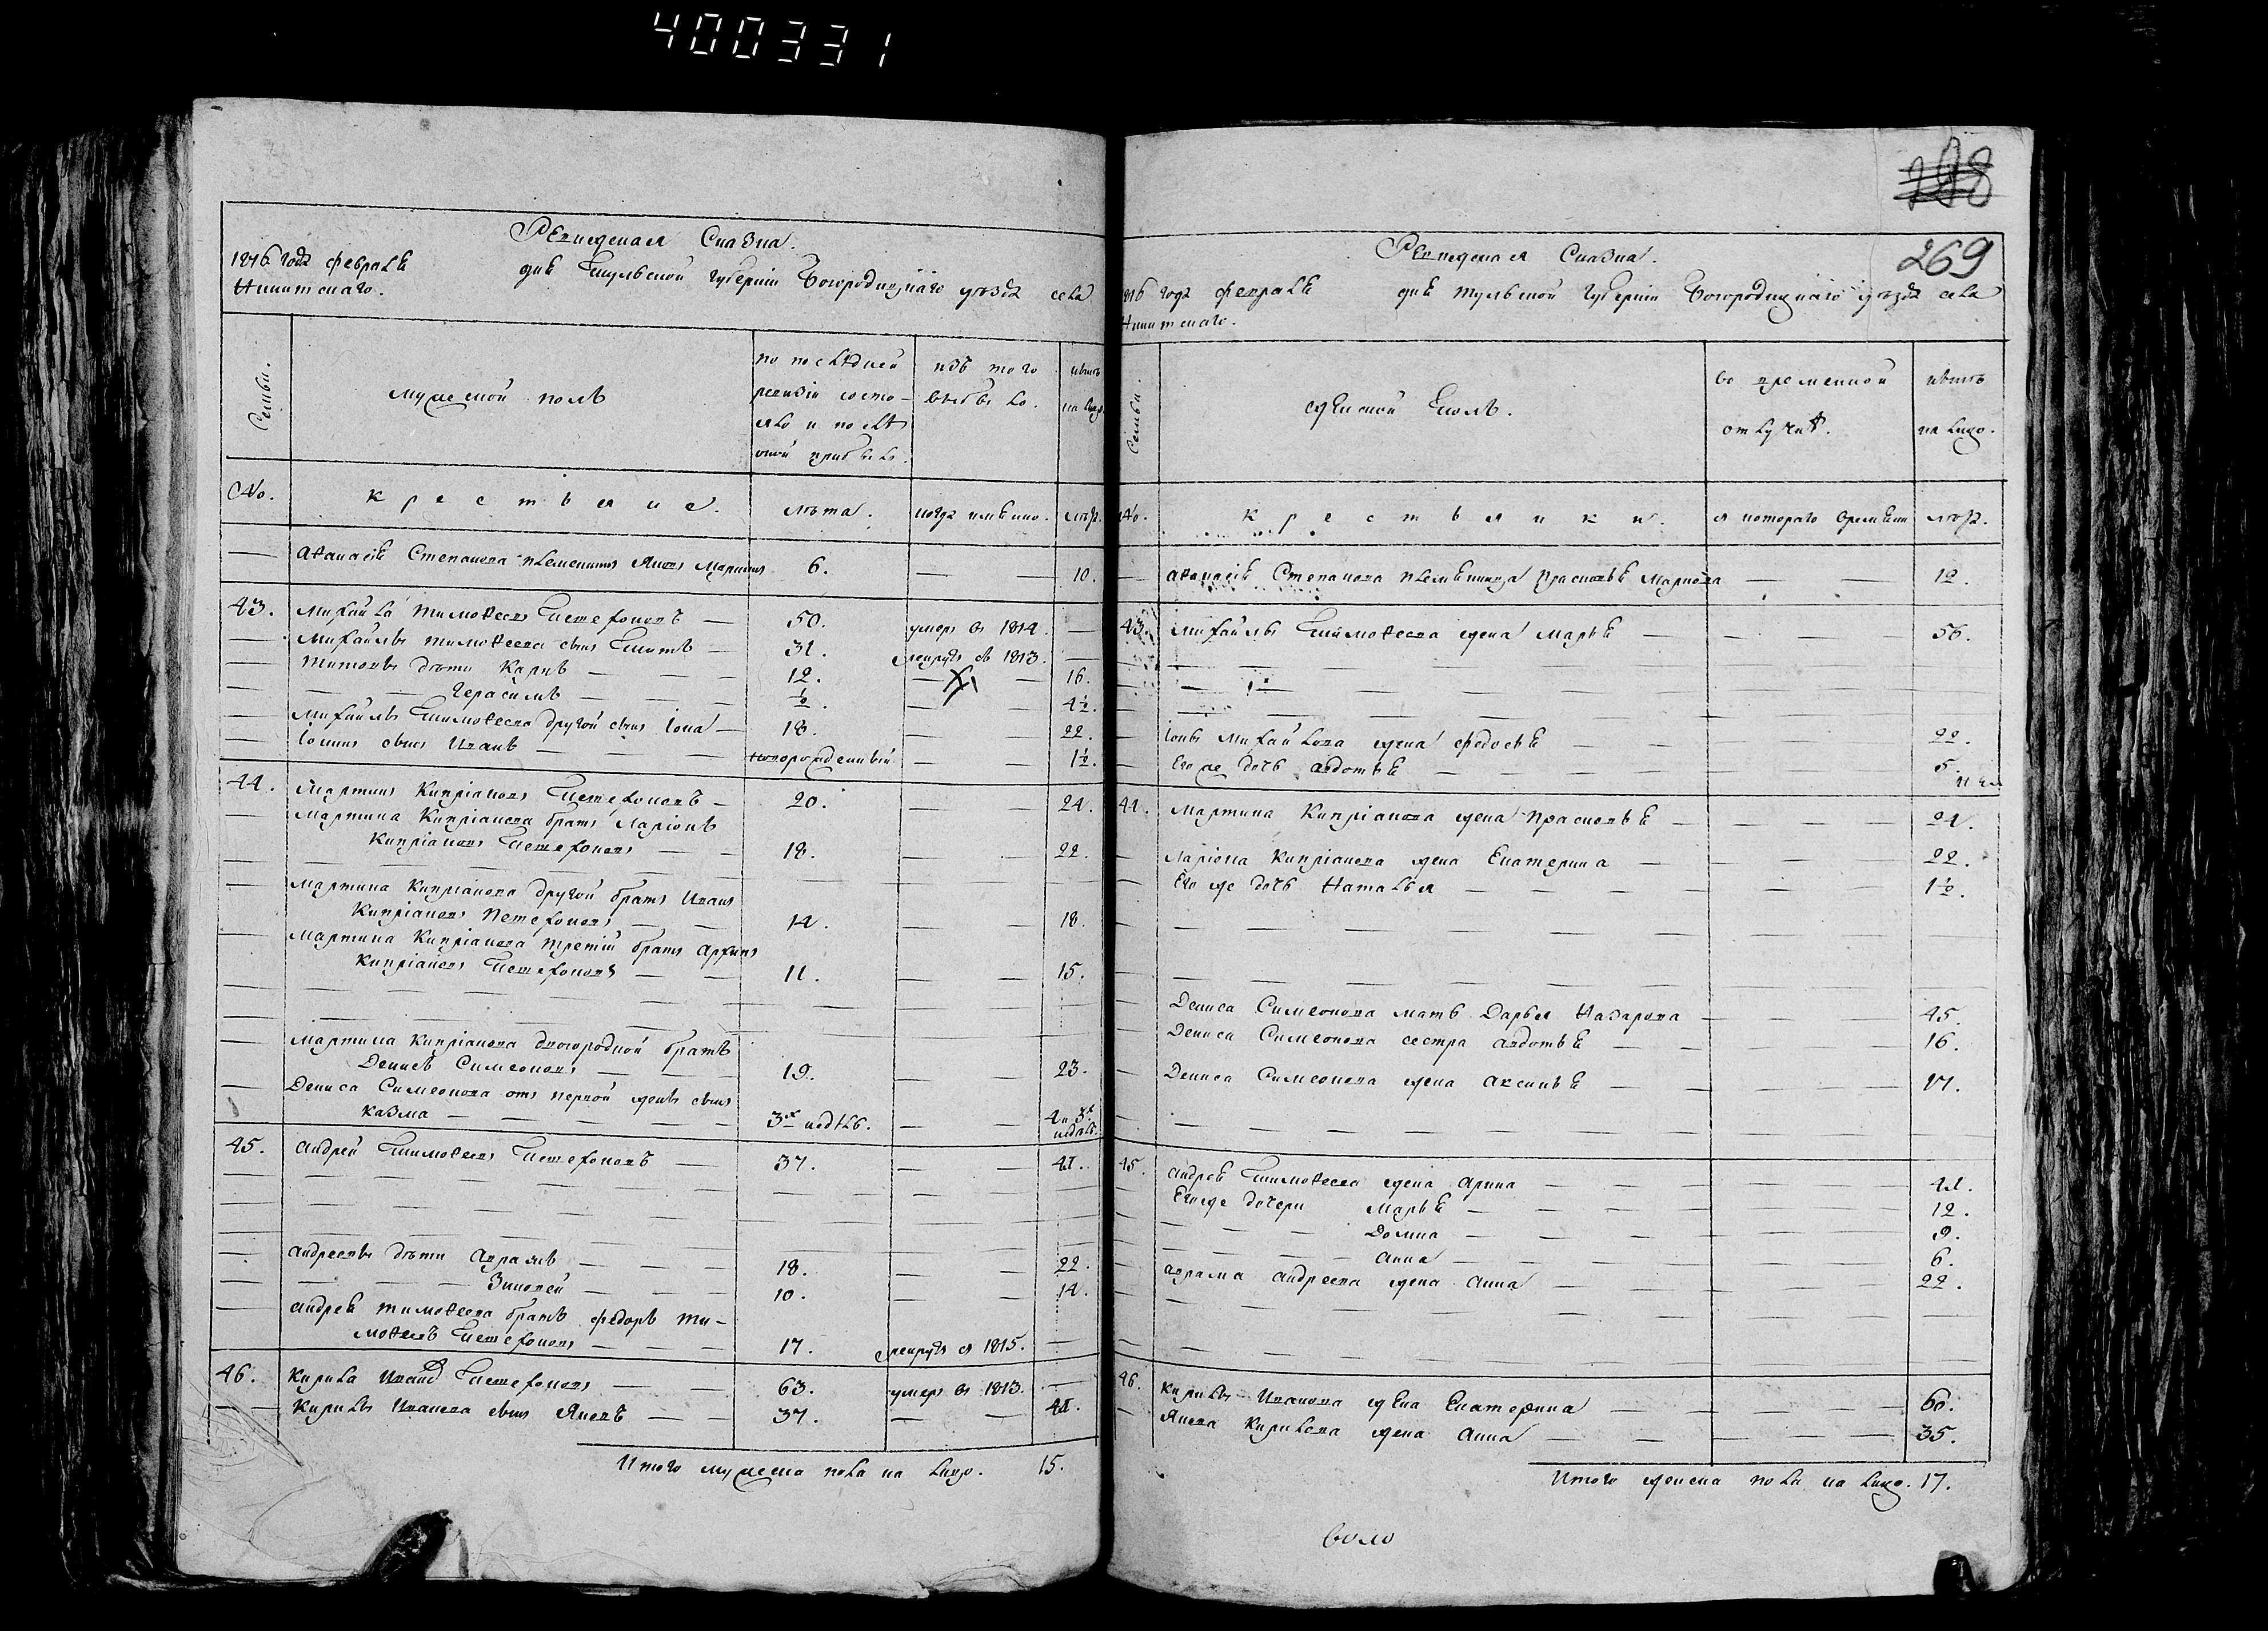 400331
Ревижская Сказка.
1816 года февраля дня Тульской губернии Богородицкаго уезда села
Никитскаго.
Семьи.
мужеской полъ
по последней
ревизiи состо-
яло и после
оной прибыло.
изъ того
выбыло.
ныне
на лицо
№.
крестьяне.
лѣта.
когда имянно.
лѣта.
— Аѳанасiя Степанова племянникъ Яковъ Марковъ 6. — — 10.
43. Михайла Тимоѳеевъ Ксенофоновъ — 50. умеръ въ 1814. —
— Михайлы Тимоѳеева сынъ Титъ — 31. рекрутъ въ 1813. —
— Титовы дѣти Карпъ — — — 12. — X — 16.
— — — Герасимъ — — — ½. — — 4½.
— Михайлы Тимоѳеева другой сынъ Iона — 18. — — 22.
— Iонинъ сынъ Иванъ — — — новорожденный — — 1½.
44. Мартинъ Кипрiановъ — 20. — — 24.
— Мартина Кипрiанова братъ Ларiонъ
Кипрiановъ — — 18. — — 22.
— Мартина Кипрiанова другой братъ Иванъ
Кипрiановъ — — 14. — — 18.
— Мартина Кипрiанова третiй братъ Архипъ
Кипрiановъ — — 11. — — 15.
— Мартина Кипрiанова двоюродной братъ
Денисъ Симеоновъ — — 19. — 23.
— Дениса Симеонова отъ первой жены сынъ
Казма — — — 3х недѣль. — — 4 и 3х недѣль.
45. Андрей Тимоѳеевъ — 37. — — 41.
— Андреевы дѣти Авраамъ — — — 18. — — 22.
— — — Зиновей — — — 10. — — 14.
— Андрея Тимоѳеева братъ Федоръ Ти-
моѳеевъ — — — 17. рекрутъ въ 1815. —
46. Кирила Ивановъ — — 63. умеръ въ 1813. —
— — Кирилы Иванова сынъ Яковъ — — 37. — — 41.
Итого мужеска пола на лицо. 15.
298
269
Ревижская Сказка.
1816 года февраля дня Тульской губернии Богородицкаго уезда села
Никитскаго.
Семьи.
женской полъ.
во временной
отлучке.
ныне
на лицо.
№.
крестьянки.
съ котораго времени
лѣта.
— Аѳанасiя Степанова племянница Прасковья Маркова — — 12.
43. Михайлы Тимоѳеева жена Марья — — — 56.
— Iоны Михайлова жена Федосья — — — 22.
— Его же дочь Авдотья — — — 5.
44. Мартина Кипрiанова жена Прасковья — — — 24.
— Ларiона Кипрiанова жена Екатерина — — — 22.
— Его же дочь Наталья — — — 1½.
— Дениса Симеонова мать Дарья Назарова — — 45.
— Дениса Симеонова сестра Авдотья — — — 16.
— Дениса Симеонова жена Аксинья — — — 17.
45. Андрея Тимоѳеева жена Арина — — — 41.
— Его же дочери Марья — — — 12.
— — — Домна — — — 9.
— — — Анна — — — 6.
— Авраама Андреева жена Анна — — — 22.
46. Кирилы Иванова жена Екатерина — — — 60.
— Якова Кирилова жена Анна — — — 35.
Итого женска пола на лицо. 17.